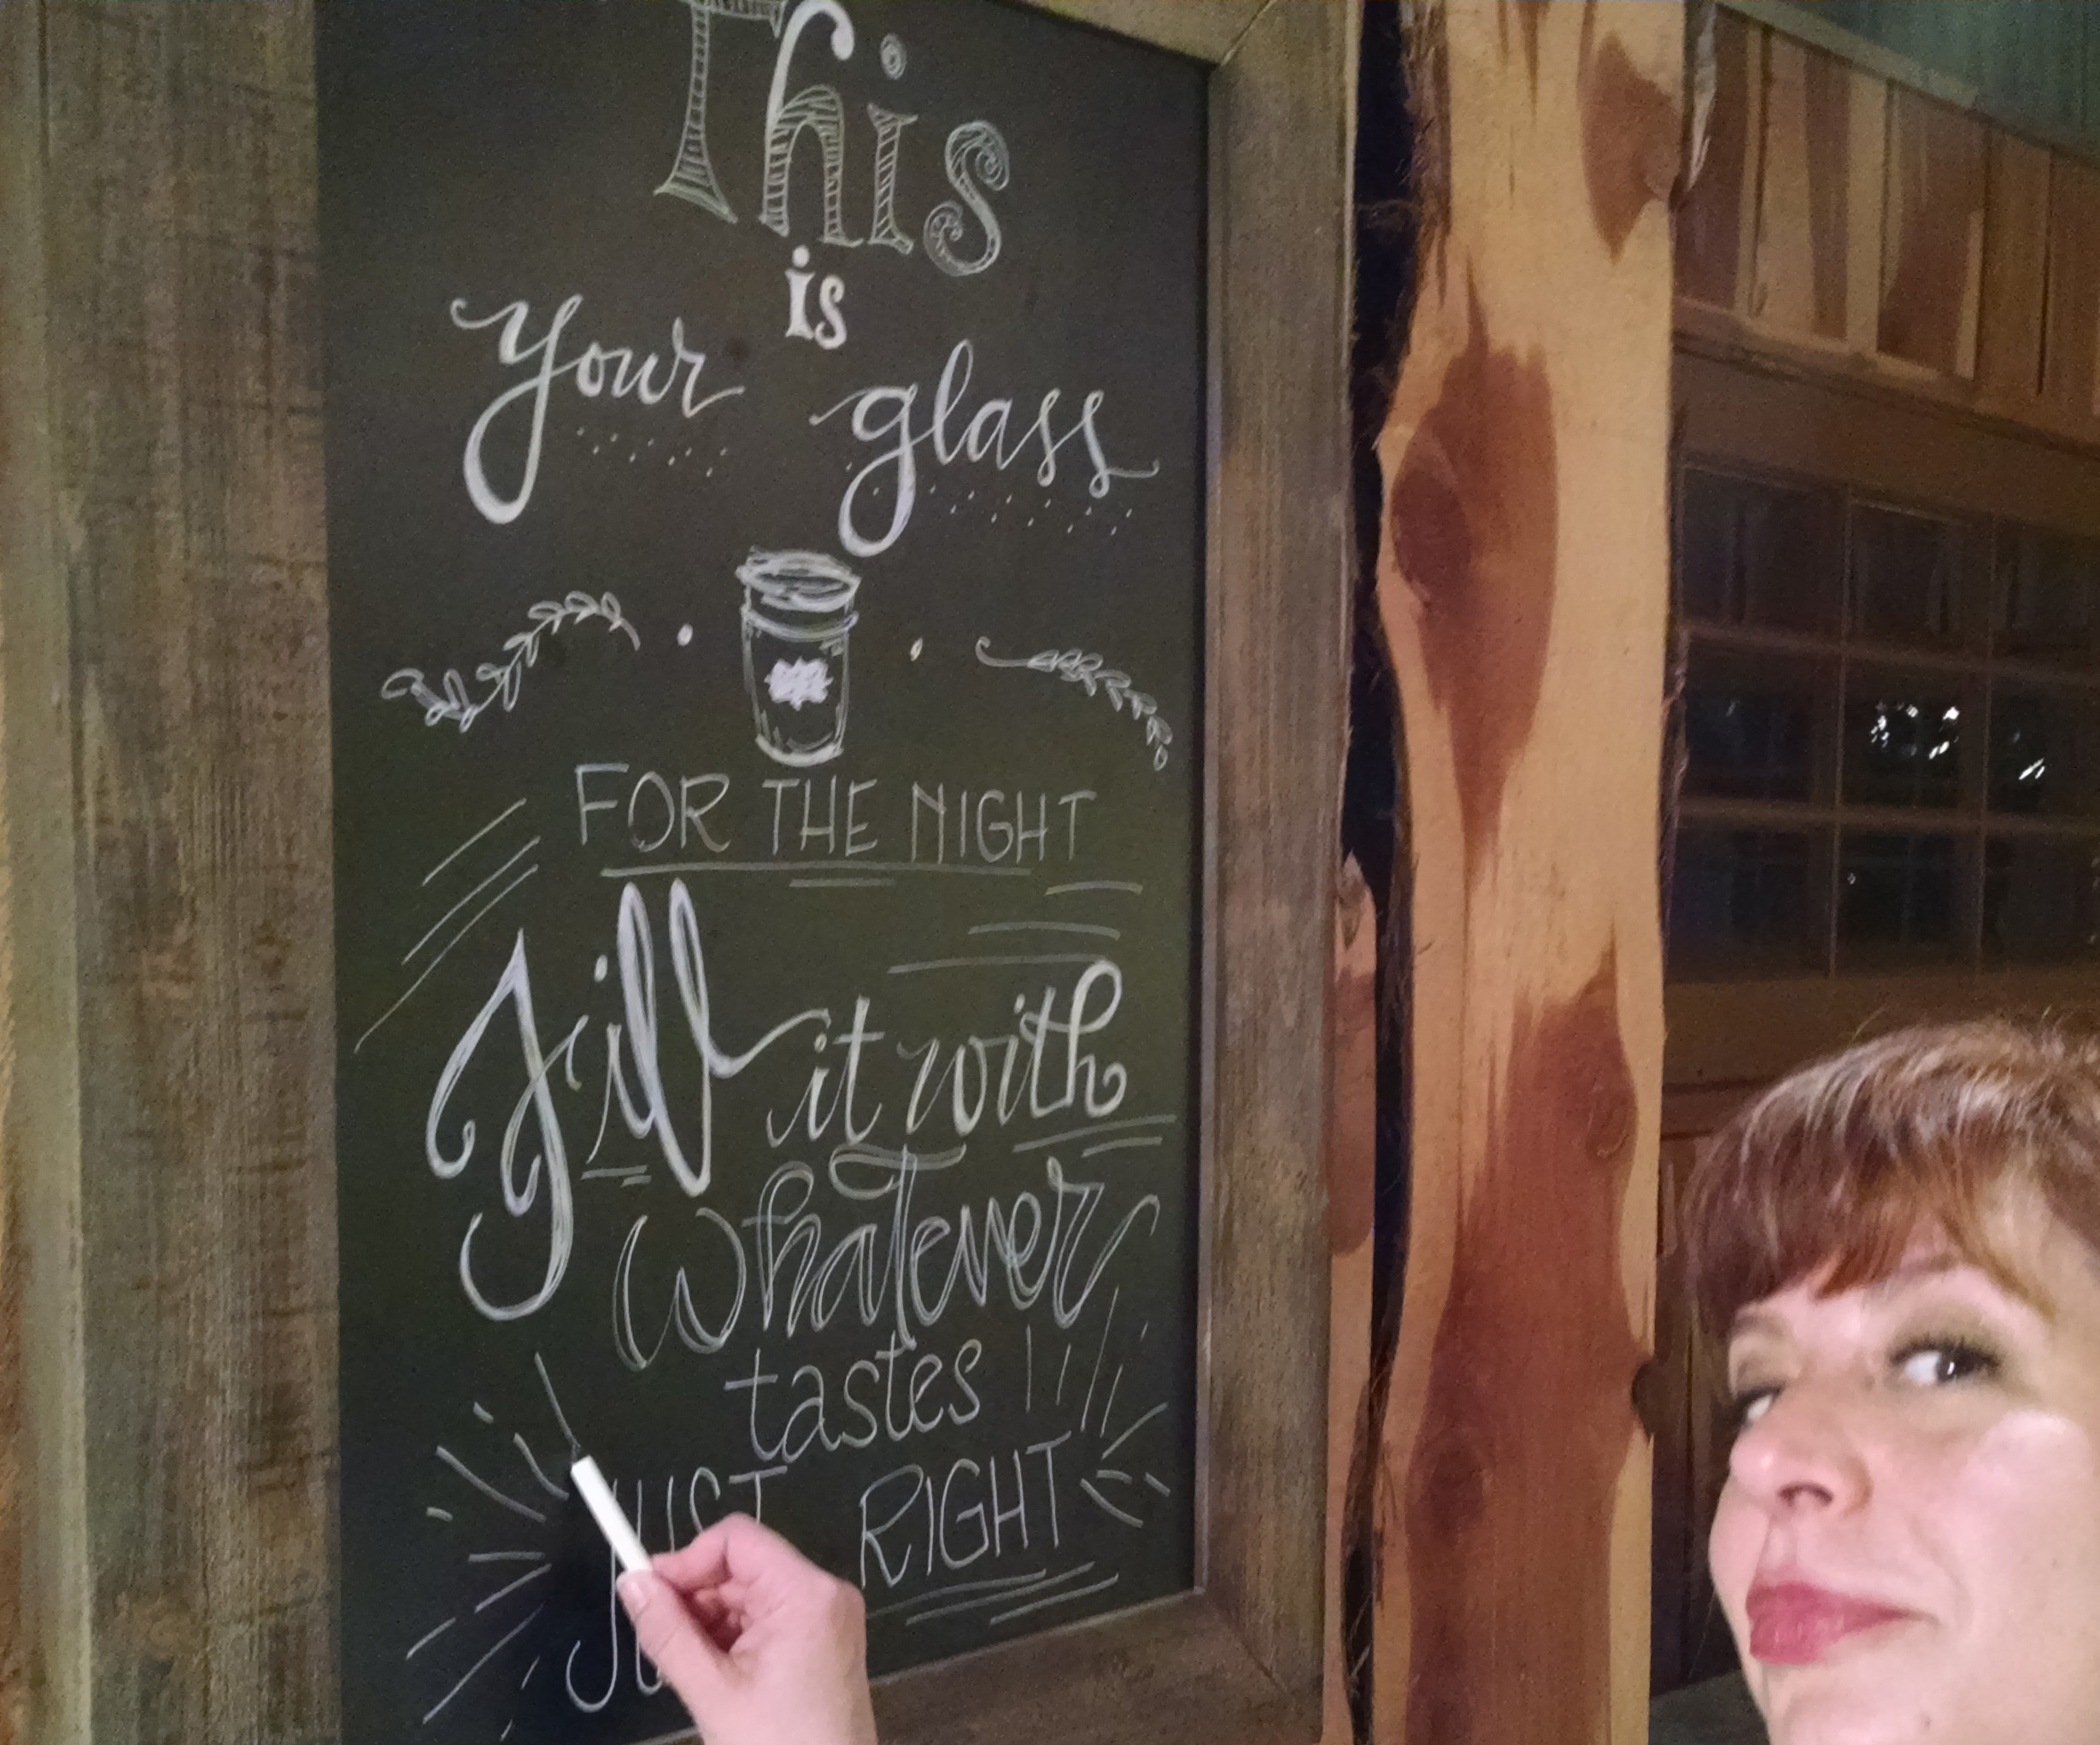 This
is
your glass
FOR THE NIGHT
fill it with
whatever
tastes
JUST RIGHT